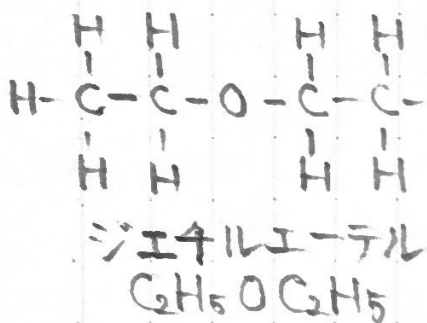 H H H H
H-C-C-O-C-C-
H H H H
ジエチルエーテル
C₂H₅OC₂H₅